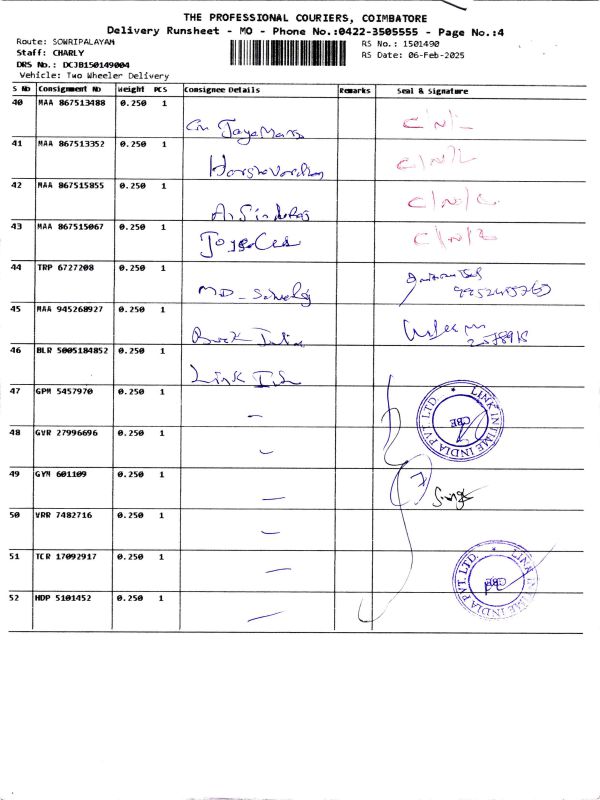 THE PROFESSIONAL COURIERS, COIMBATORE
Delivery Runsheet - MO - Phone No.:0422-3505555 - Page No.:4
Route: SOWRIPALAYAM
RS No.: 1501490
Staff: CHARLY
RS Date: 06-Feb-2025
DRS No.: DCJB150149004
Vehicle: Two Wheeler Delivery
S No Consignment No Weight PCS Consignee Details Remarks Seal & Signature
40 MAA 867513488 0.250 1
C/N/
41 MAA 867513352 0.250 1
C/N/
42 MAA 867515855 0.250 1
C/N/
43 MAA 867515067 0.250 1
C/N/
44 TRP 6727208 0.250 1
MD -
45 MAA 945268927 0.250 1
46 BLR 5005184852 0.250 1
Link
47 GPM 5457970 0.250 1
LINK INTIME INDIA PVT. LTD. * CBE
48 GVR 27996696 0.250 1
49 GYM 601109 0.250 1
50 VRR 7482716 0.250 1
51 TCR 17092917 0.250 1
LINK INTIME INDIA PVT. LTD. * CBE
52 HDP 5101452 0.250 1